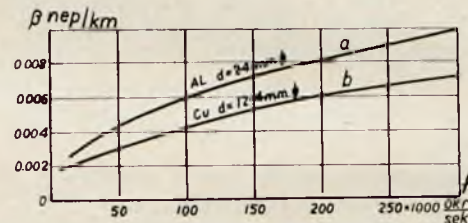 β nep/km
0.008
0.006
0.004
0.002
0
AL d=24mm ϕ
a
Cu d=12.4mm ϕ
b
50 100 150 200 250*1000 ökr/sek
f